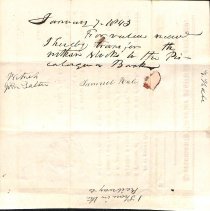 January 7. 1843
For value received
I hereby transfer the
within stocks to the Pis-
cataqua Bank
Witness
Samuel Hale
John Salter
S Hale
1 Share in the
Railway &